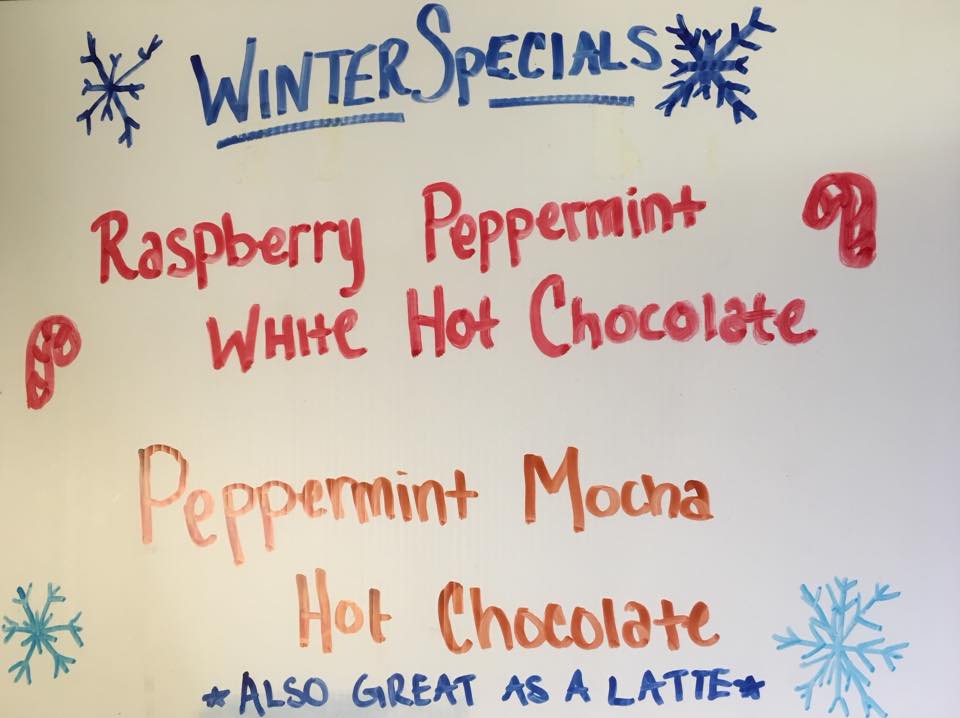 WINTER SPECIALS
Raspberry Peppermint
WHitE Hot Chocolate
Peppermint Mocha
Hot Chocolate
*ALSO GREAT AS A LATTE*